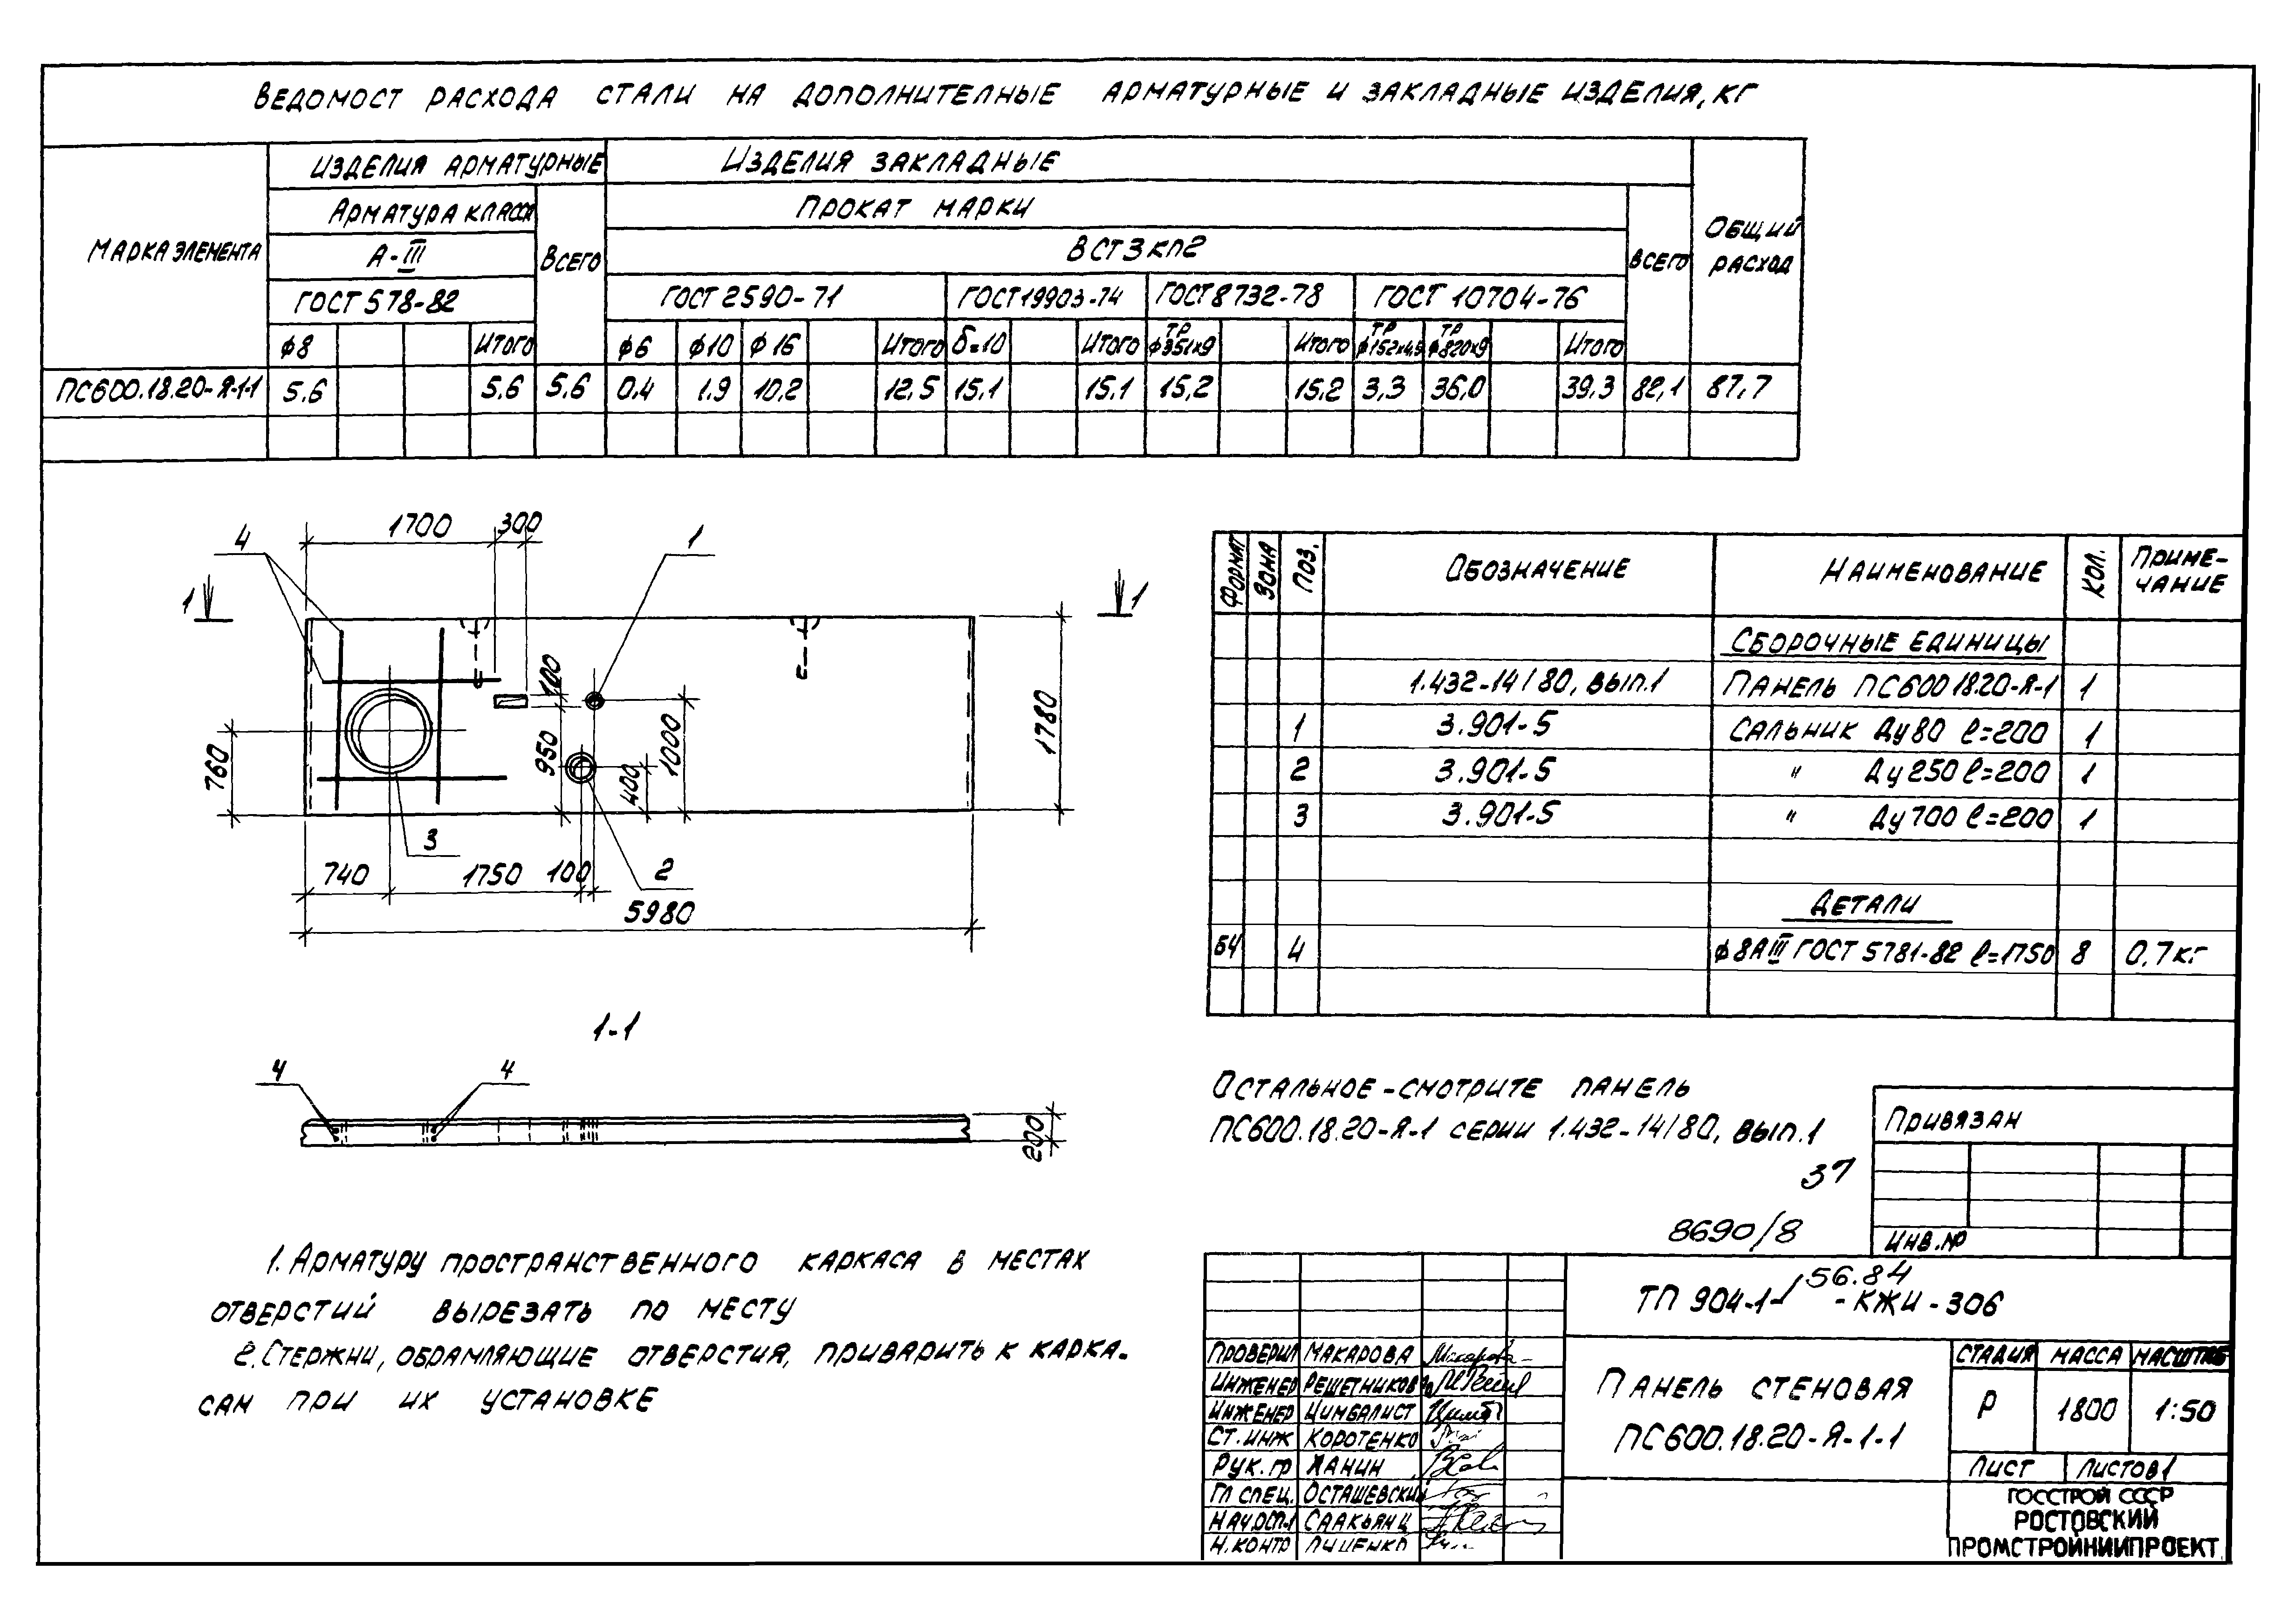 Ведомост расхода стали на дополнителные арматурные и закладные изделия, кг
Марка элемента
Изделия арматурные
Изделия закладные
Общий расход
Арматура класса
Всего
Прокат марки
всего
А-III
ВСт3кп2
ГОСТ 578-82
ГОСТ 2590-71
ГОСТ 19903-74
ГОСТ 8732-78
ГОСТ 10704-76
ф8 Итого ф6 ф10 ф16 Итого δ=10 Итого тр ф351х9 Итого тр ф152х4,5 тр ф820х9 Итого
ПС600.18.20-Я-1-1 5.6 5.6 5.6 0.4 1.9 10,2 12,5 15,1 15.1 15,2 15,2 3,3 36,0 39,3 82,1 87,7
1700 300
4
1
1
1
100
760
950
400
1000
1780
3
2
740 1750 100
5980
1-1
4 4
200
Формат Зона Поз. Обозначение Наименование Кол. Приме-чание
Сборочные единицы
1.432-14/80, вып.1 Панель ПС600 18.20-Я-1 1
1 3.901-5 Сальник Ду80 ℓ=200 1
2 3.901-5 " Ду250 ℓ=200 1
3 3.901-5 " Ду700 ℓ=200 1
Детали
БЧ 4 ф8АIII ГОСТ 5781-82 ℓ=1750 8 0,7кг
Остальное-смотрите панель
ПС600.18.20-Я-1 серии 1.432-14/80, вып.1
37
8690/8
Привязан
Инв.№
1. Арматуру пространственного каркаса в местах
отверстий вырезать по месту
2. Стержни, обрамляющие отверстия, приварить к карка-
сам при их установке
ТП 904-1-56.84 -КЖИ-306
Проверил Макарова
Инженер Решетникова
Инженер Цимбалист
Ст.инж Коротенко
Рук.гр Ханин
Гл спец. Осташевский
Нач.отд Саакьянц
Н.контр Луценко
Панель стеновая
ПС600.18.20-Я-1-1
Стадия Масса Масштаб
Р 1800 1:50
Лист Листов 1
ГОССТРОЙ СССР
РОСТОВСКИЙ
ПРОМСТРОЙНИИПРОЕКТ